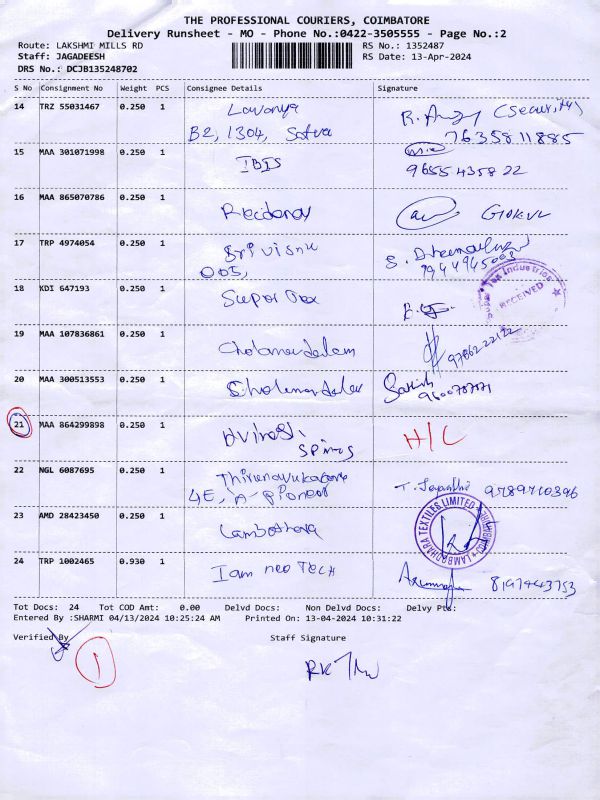 THE PROFESSIONAL COURIERS, COIMBATORE
Delivery Runsheet - MO - Phone No.:0422-3505555 - Page No.:2
Route: LAKSHMI MILLS RD RS No.: 1352487
Staff: JAGADEESH RS Date: 13-Apr-2024
DRS No.: DCJB135248702
S No Consignment No Weight PCS Consignee Details Signature
14 TRZ 55031467 0.250 1 Lavanya (Security)
B2, 1304, 7635811885
15 MAA 301071998 0.250 1 IBIS 9655435822
16 MAA 865070786 0.250 1 GIOKUL
17 TRP 4974054 0.250 1 Sri Visnu S.
005, 7944945003
18 KDI 647193 0.250 1 Super Tex
Super Tex Industries
RECEIVED
19 MAA 107836861 0.250 1 Cholamandalam
20 MAA 300513553 0.250 1 Sathish
21 MAA 864299898 0.250 1 H/C
22 NGL 6087695 0.250 1
4E, A- Pioneer
23 AMD 28423450 0.250 1
LAMBODHARA TEXTILES LIMITED
24 TRP 1002465 0.930 1 I am neo TECH 8197443753
Tot Docs: 24 Tot COD Amt: 0.00 Delvd Docs: Non Delvd Docs: Delvy Pts:
Entered By :SHARMI 04/13/2024 10:25:24 AM Printed On: 13-04-2024 10:31:22
Verified By Staff Signature
1